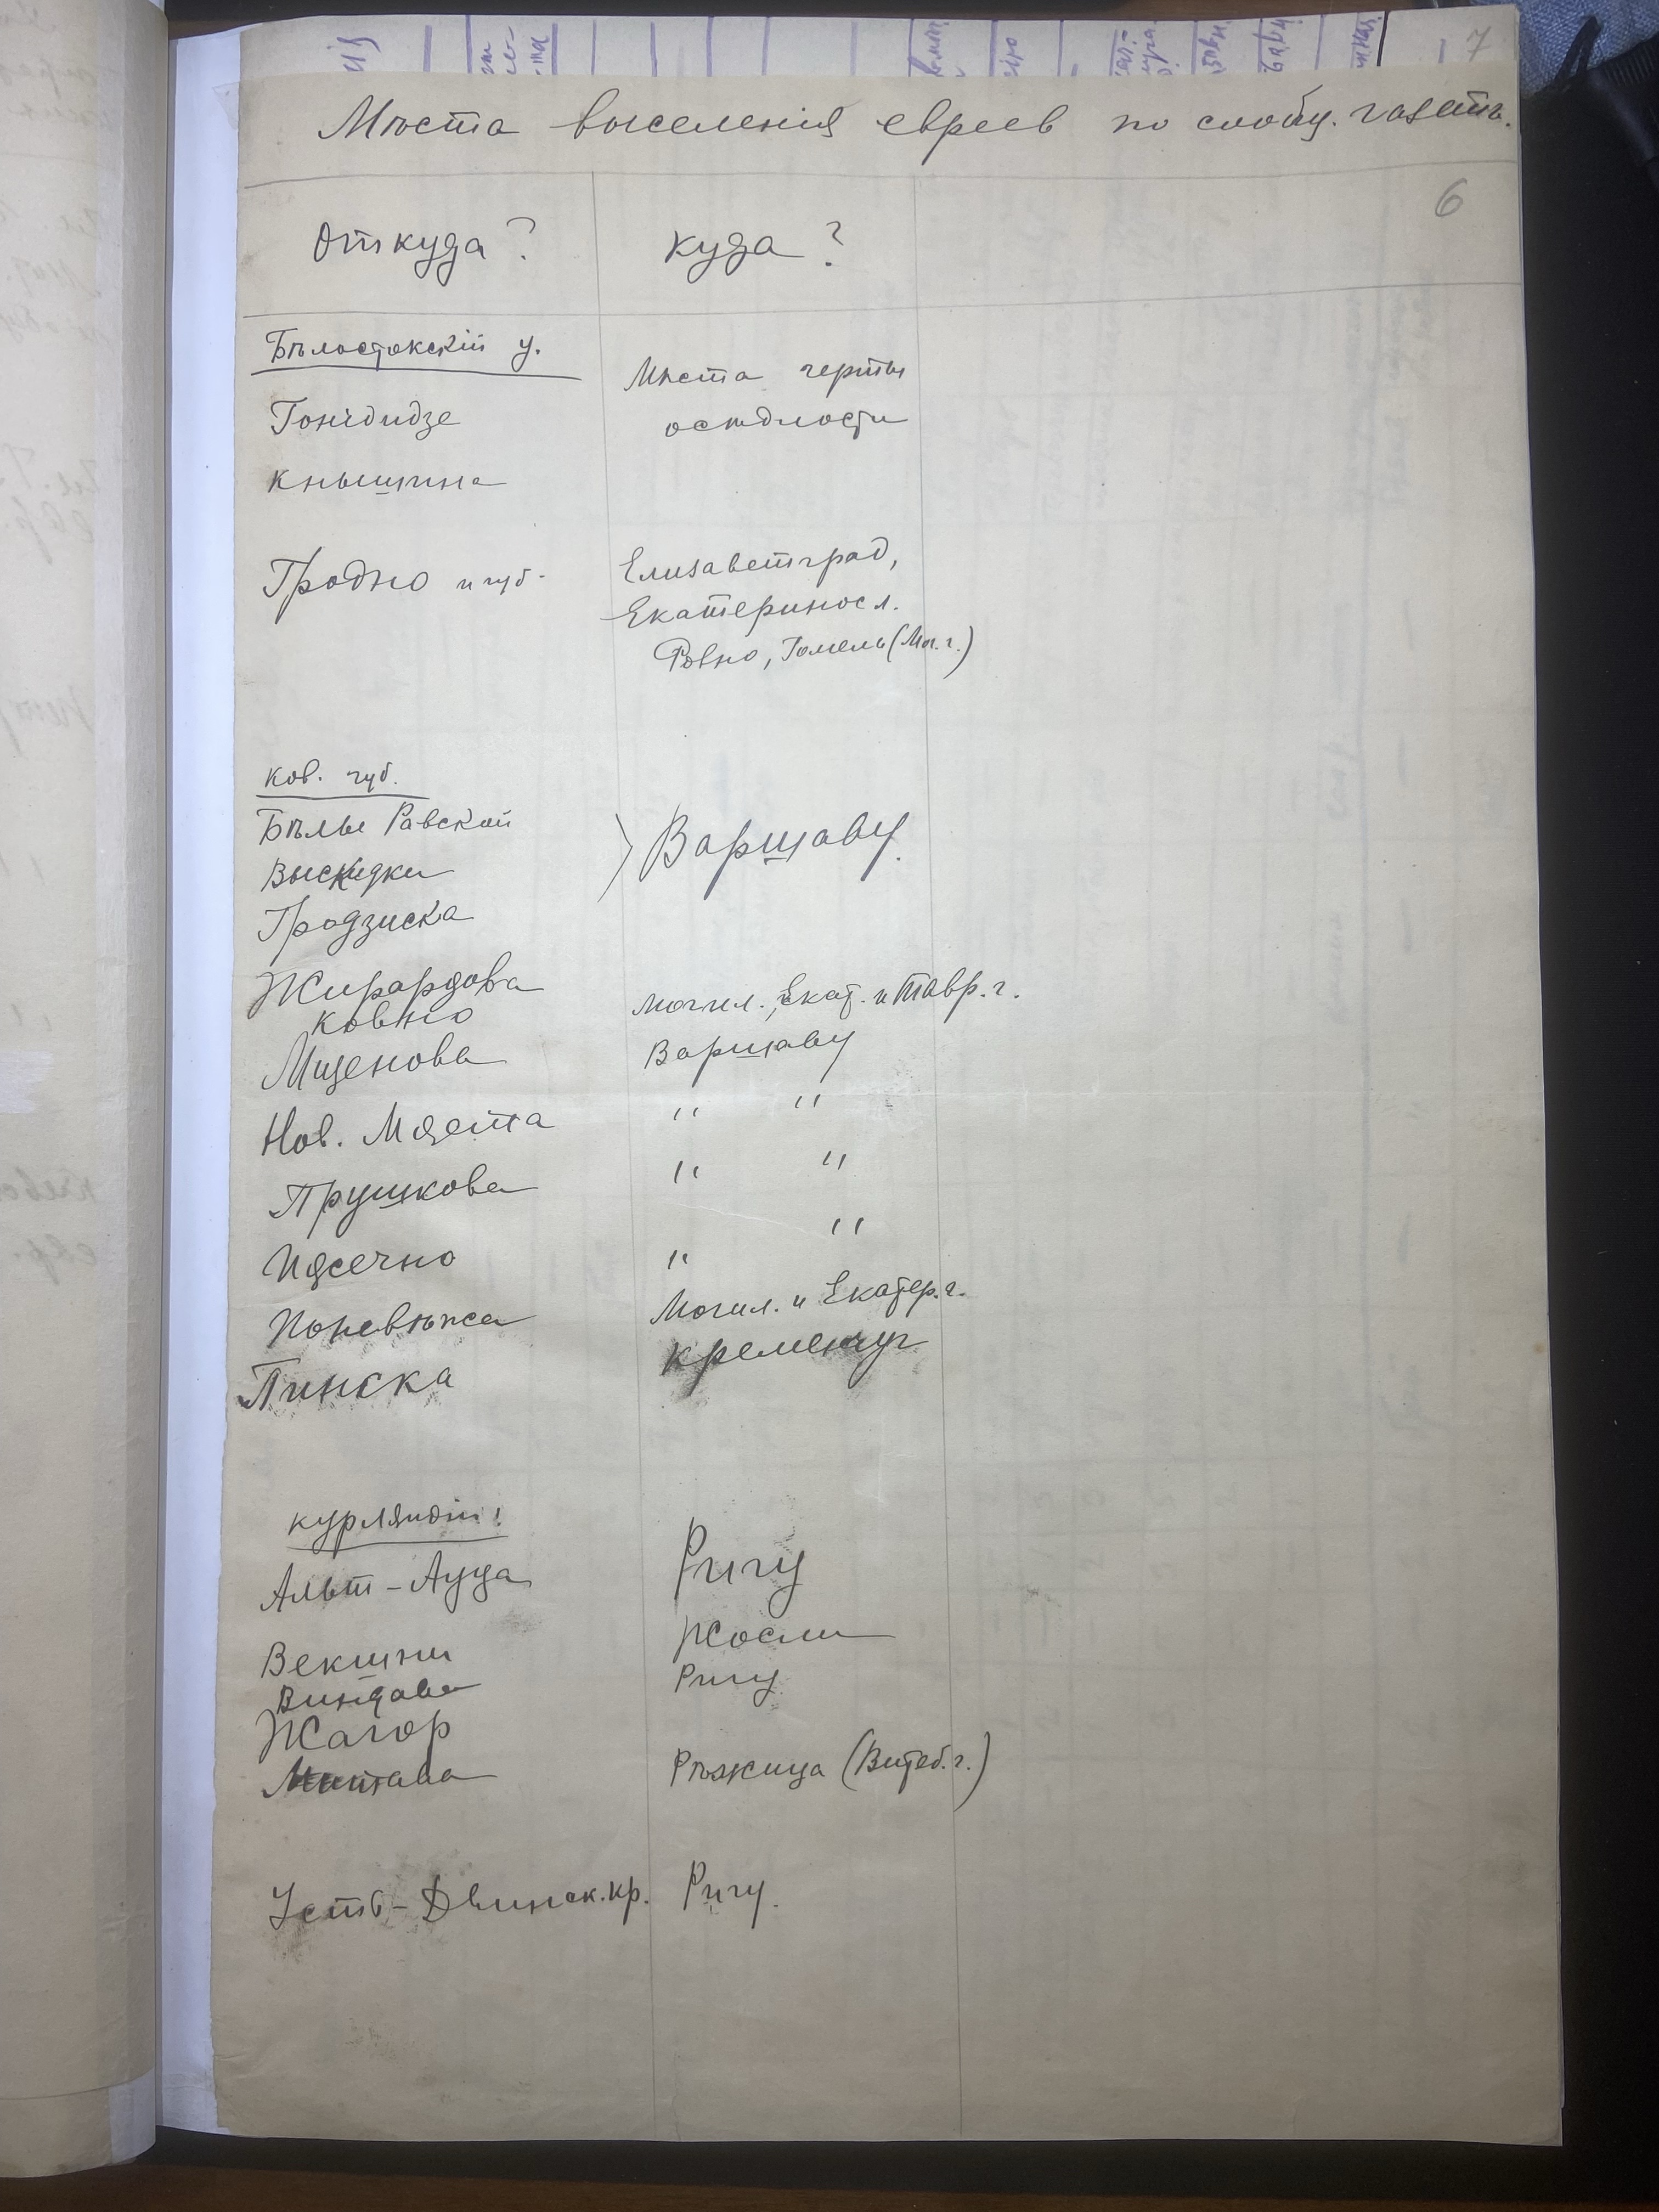 7
Мѣста выселенія евреев по сообщ. газетъ.
6
Откуда? куда?
Бѣлостокскій у.
Мѣста черты
Гоніодидзе осѣдлости
Кнышина
Гродно и губ. Елизаветград,
Екатеринос л.
Ровно, Гомель (Мог. г.)
Ков. губ.
Бѣлы Равской
Варшаву.
Выскидки
Гродзиска
Жирардова Могил., Екат. и Тавр. г.
Ковно
Мщенова Варшаву
Нов. Мяста " "
Прушкова " "
Пясечно " "
Поневѣжа Могил. и Екатер. г.
Пинска Кременчуг
Курляндіи:
Альт-Ауца Ригу
Векшни Жосли
Виндава Ригу
Жагор
Митава Рѣжица (Витеб. г.)
Усть-Двинск. кр. Ригу.